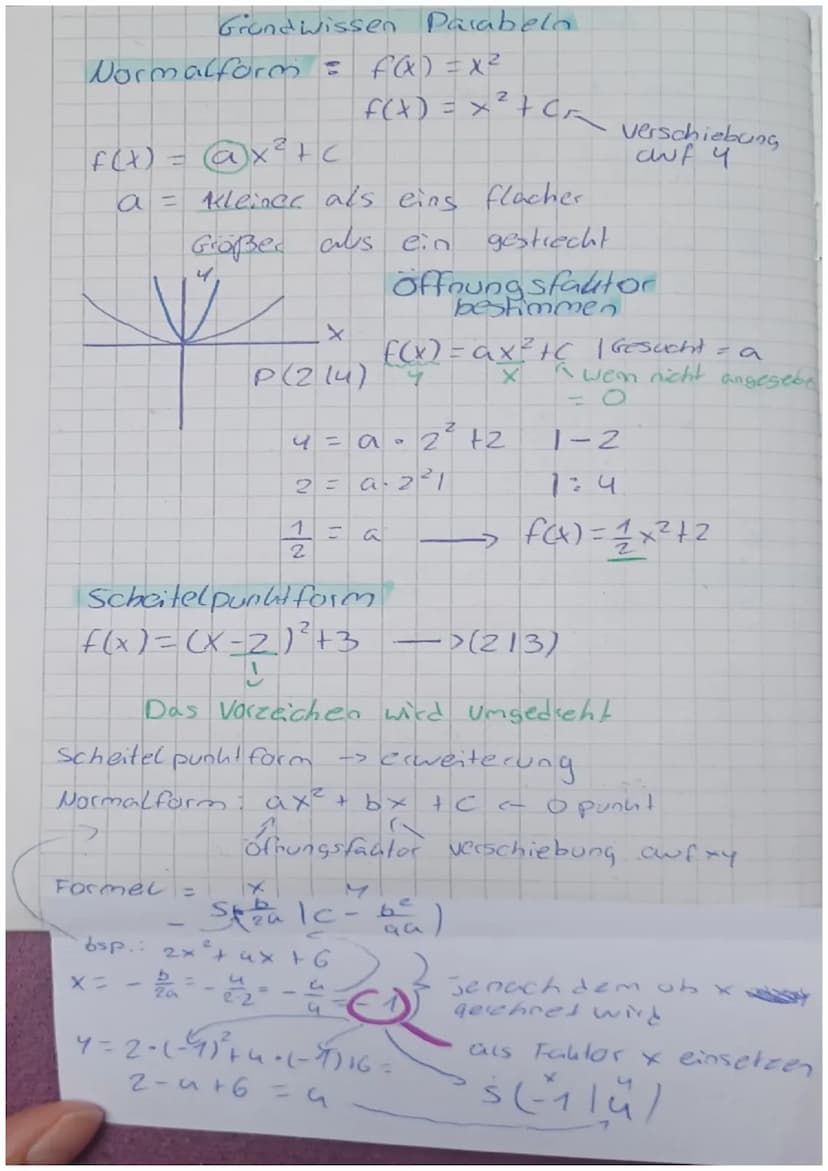 Grundwissen Parabeln
Normalform = f(x) = x²
f(x) = x² + c
verschiebung
auf y
f(x) = ax² + c
a = kleiner als eins flacher
Größer als ein gestrecht
y
x
Öffnungsfaktor
bestimmen
f(x) = ax² + c | Gesucht = a
P(2|4) y x wenn nicht angegebe
= 0
4 = a · 2² + 2 | - 2
2 = a · 2² | | : 4
1/2 = a → f(x) = 1/2 x² + 2
Scheitelpunktform
f(x) = (x - 2)² + 3 → (2|3)
!
Das Vorzeichen wird umgedreht
Scheitelpunktform → erweiterung
Normalform: ax² + bx + c ← 0 punkt
Öffnungsfaktor verschiebung auf xy
Formel = x y
- S(b/2a | c - b²/4a)
bsp.: 2x² + 4x + 6
x = - b/2a = - 4/2·2 = - 4/4 = -1 } Jenachdem ob x
gerechnet wird
y = 2 · (-1)² + 4 · (-1) + 6 = als Faktor x einsetzen
2 - 4 + 6 = 4
x y
S(-1|4)